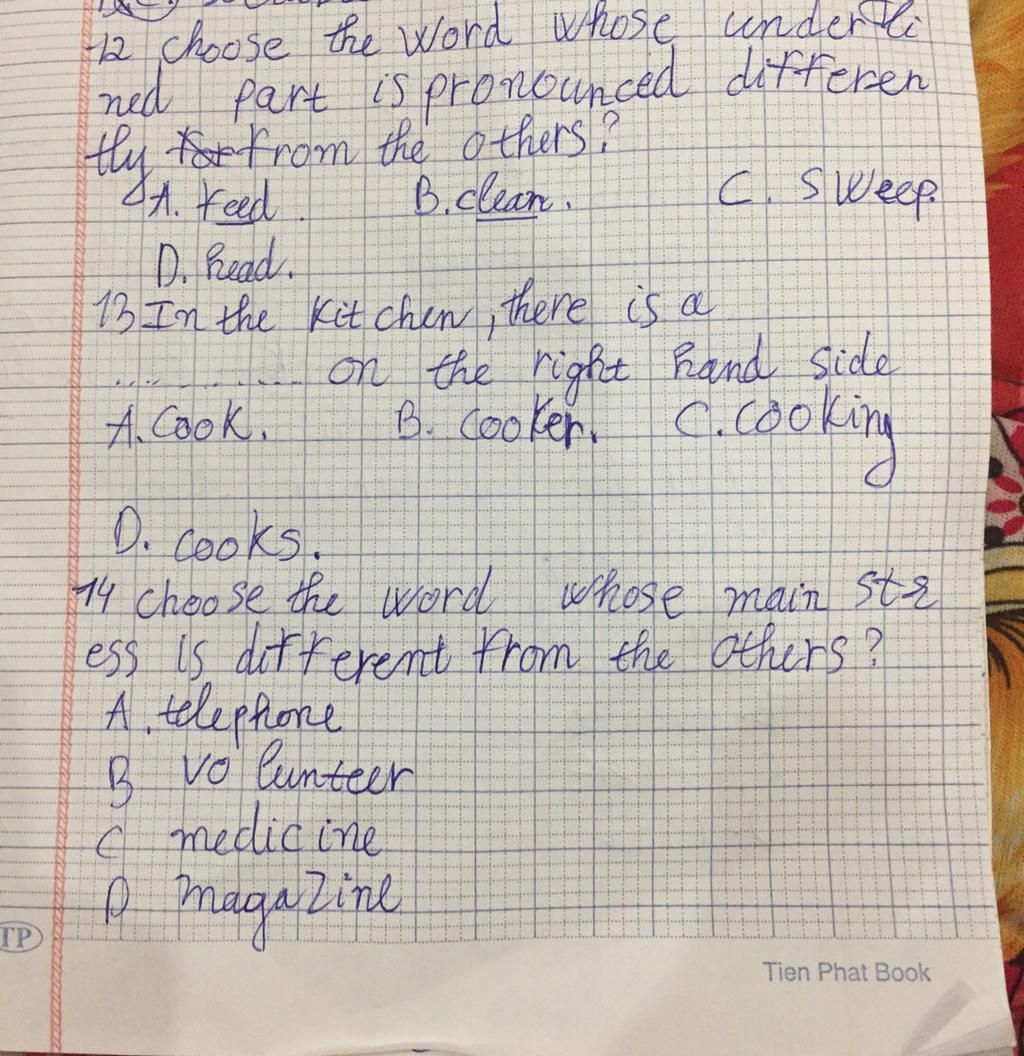 12 choose the word whose underli
ned part is pronounced differen
tly from the others?
A. feed. B. clean. C. sweep.
D. head.
13 In the kitchen, there is a
............ on the right hand side
A. Cook. B. cooker. C. cooking
D. cooks.
14 choose the word whose main str
ess is different from the others?
A. telephone
B volunteer
C medicine
D magazine
TP
Tien Phat Book